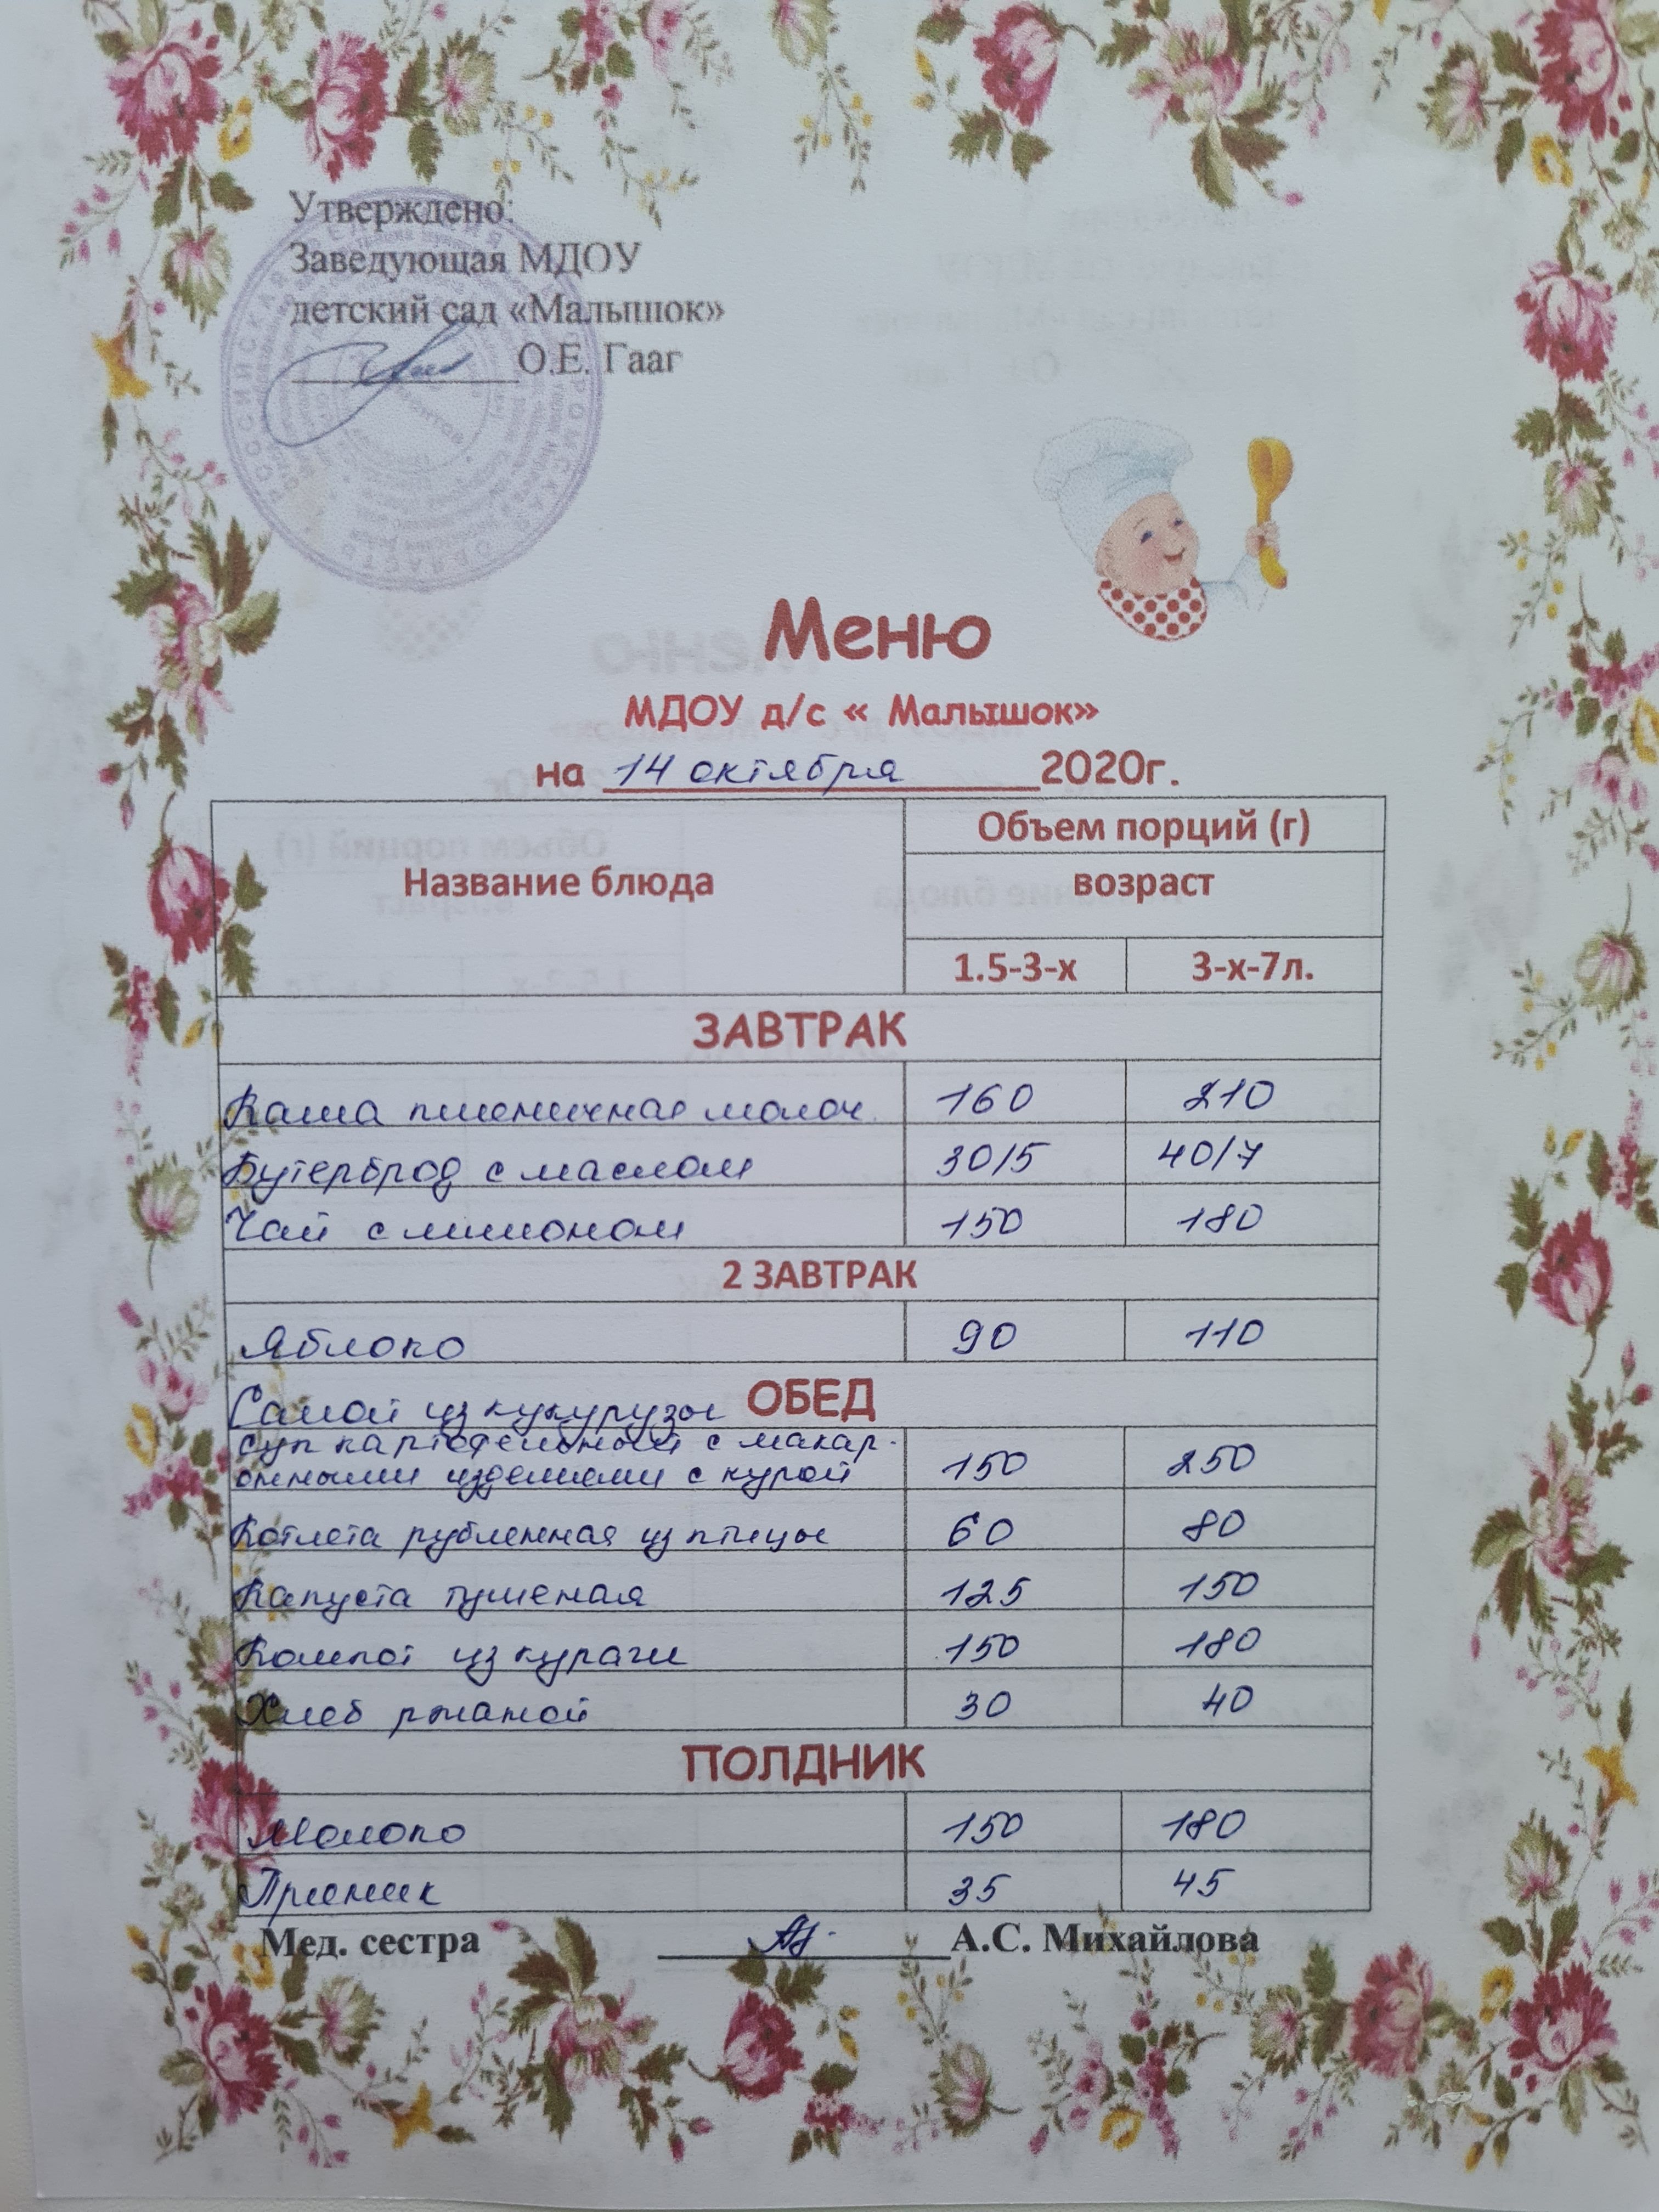 Утверждено:
Заведующая МДОУ
детский сад «Малышок»
О.Е. Гааг
Меню
МДОУ д/с « Малышок»
на 14 октября 2020г.
Название блюда
Объем порций (г)
возраст
1.5-3-х 3-х-7л.
ЗАВТРАК
Каша пшеничная молоч. 160 210
Бутерброд с маслом 30/5 40/7
Чай с лимоном 150 180
2 ЗАВТРАК
Яблоко 90 110
Салат из кукурузы ОБЕД
Суп картофельный с макар-
онными изделиями с курой 150 250
Котлета рубленная из птицы 60 80
Капуста тушеная 125 150
Компот из кураги 150 180
Хлеб ржаной 30 40
ПОЛДНИК
Молоко 150 180
Пряник 35 45
Мед. сестра А.С. Михайлова